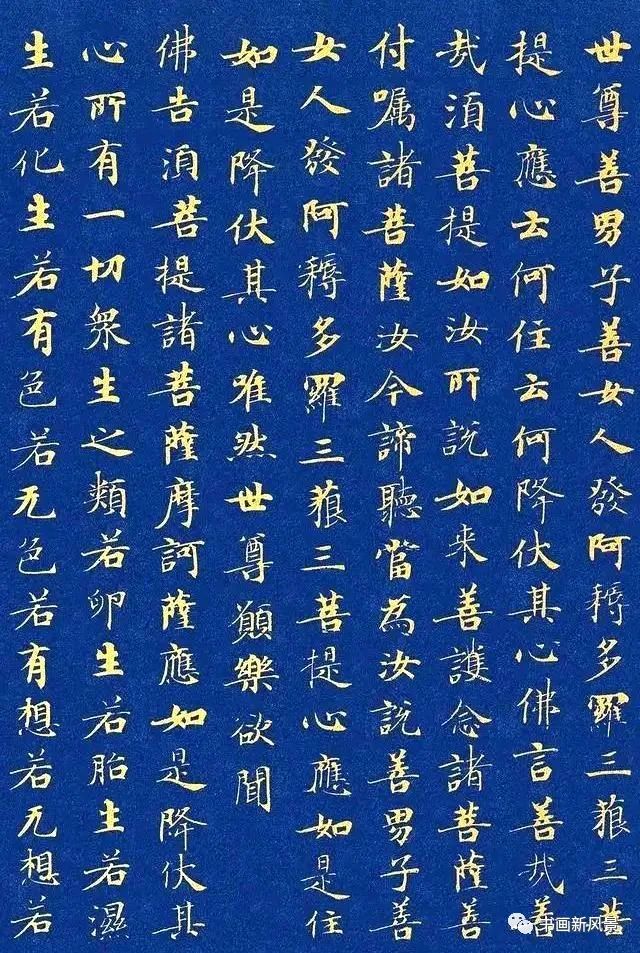 世尊善男子善女人發阿耨多羅三藐三菩
提心應云何住云何降伏其心佛言善哉善
哉須菩提如汝所說如来善護念諸菩薩善
付囑諸菩薩汝今諦聽當為汝說善男子善
女人發阿耨多羅三藐三菩提心應如是住
如是降伏其心唯然世尊願樂欲聞
佛告須菩提諸菩薩摩訶薩應如是降伏其
心所有一切眾生之類若卵生若胎生若濕
生若化生若有色若无色若有想若无想若
书画新风景